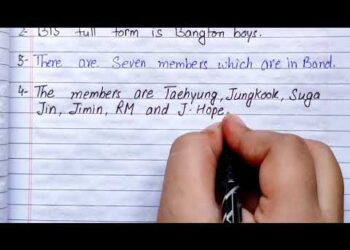 2- BTS full form is Bangton boys.
3- There are Seven members which are in Band.
4- The members are Taehyung, Jungkook, Suga
Jin, Jimin, RM and J-Hope.